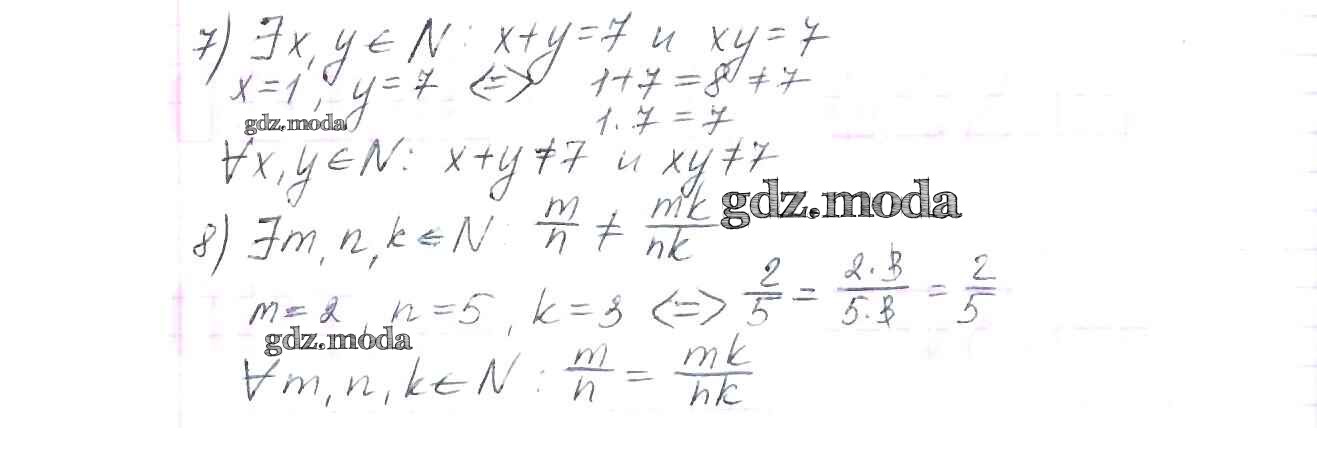 7) ∃x, y ∈ N : x+y=7 и xy=7
x=1, y=7 <=> 1+7=8≠7
gdz.moda
1·7=7
∀x, y ∈ N : x+y≠7 и xy≠7
gdz.moda
8) ∃m, n, k ∈ N : m/n ≠ mk/nk
m=2, n=5, k=3 <=> 2/5 = 2·3/5·3 = 2/5
gdz.moda
∀m, n, k ∈ N : m/n = mk/nk